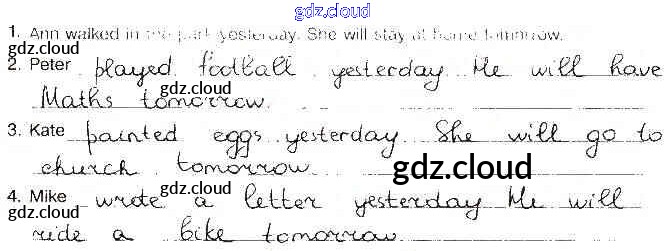 gdz.cloud
1. Ann walked in the park yesterday. She will stay at home tomorrow.
gdz.cloud
2. Peter played football yesterday He will have
gdz.cloud
Maths tomorrow.
gdz.cloud
3. Kate painted eggs yesterday She will go to
church tomorrow gdz.cloud
gdz.cloud
4. Mike wrote a letter yesterday He will
gdz.cloud
ride a bike tomorrow